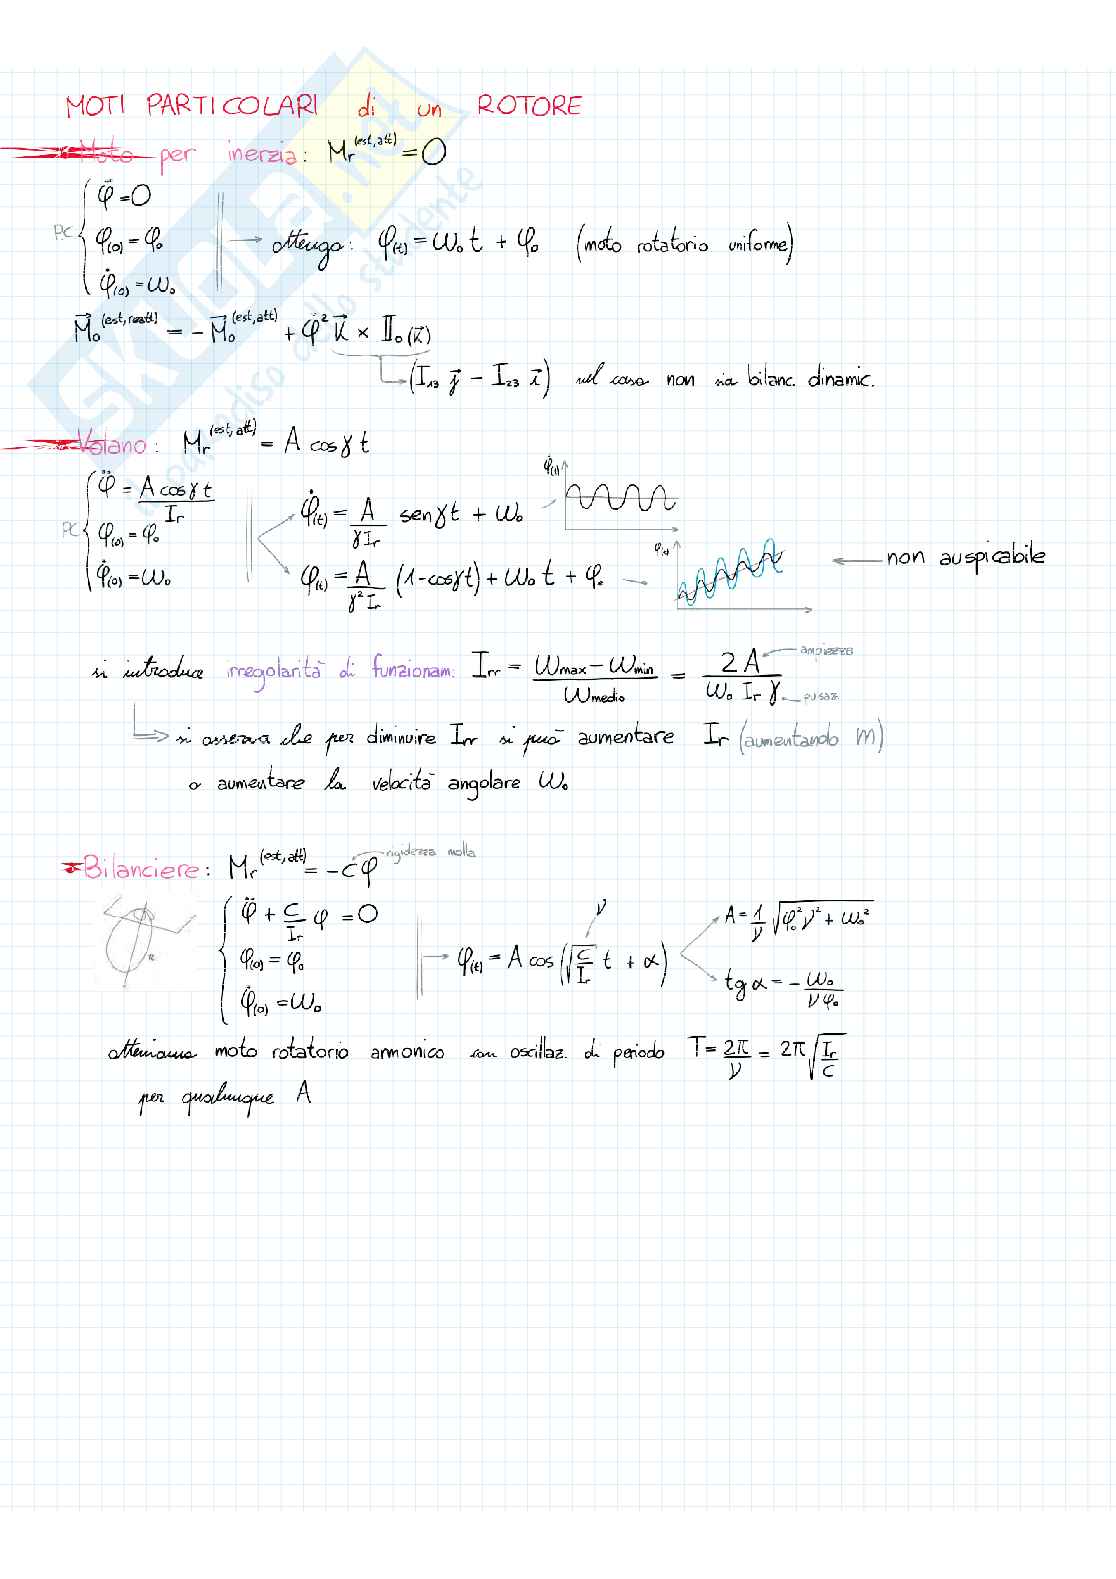 MOTI PARTICOLARI di un ROTORE
Moto per inerzia: Mr^(est,att) = 0
P.C. { φ̈ = 0
φ(0) = φ₀
φ̇(0) = ω₀
ottengo: φ(t) = ω₀ t + φ₀ (moto rotatorio uniforme)
M⃗₀^(est,reatt) = - M⃗₀^(est,att) + φ̇² K⃗ × II₀(K⃗)
(I₁₃ j⃗ - I₂₃ i⃗) nel caso non sia bilanc. dinamic.
Volano: Mr^(est,att) = A cosγt
PC { φ̈ = A cosγt / Ir
φ(0) = φ₀
φ̇(0) = ω₀
φ̇(t) = A/(γIr) senγt + ω₀
φ̇(t)
φ(t) = A/(γ²Ir) (1-cosγt) + ω₀ t + φ₀
φ(t)
non auspicabile
si introduce irregolarità di funzionam: Irr = (ωmax - ωmin)/ωmedio = 2A/(ω₀ Ir γ)
ampiezza
pulsaz.
si osserva che per diminuire Irr si può aumentare Ir (aumentando m)
o aumentare la velocità angolare ω₀
Bilanciere: Mr^(est,att) = -cφ
rigidezza molla
R
{ φ̈ + c/Ir φ = 0
φ(0) = φ₀
φ̇(0) = ω₀
φ(t) = A cos(√(c/Ir) t + α)
ν
A = 1/ν √(φ₀²ν² + ω₀²)
tg α = - ω₀/(νφ₀)
otteniamo moto rotatorio armonico con oscillaz. di periodo T = 2π/ν = 2π√(Ir/c)
per qualunque A
SKUOLA.net
il paradiso dello studente